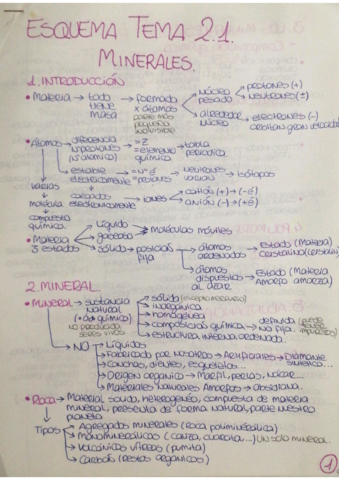 ESQUEMA TEMA 2.1.
MINERALES.
1. INTRODUCCIÓN
• Materia → todo tiene masa → formada x átomos parte más pequeña → núcleo pesado → protones (+)
neutrones (±)
alrededor núcleo → electrones (-)
orbitan gran velocidad
• Átomos → diferencia nº protones (nº atómico) → = Z = elemento químico → tabla periódica
→ estable eléctricamente → = nº é = protones → neutrones varían → isótopos
→ cargados eléctricamente → iones → catión (+) → (-é)
anión (-) → (+é)
varias
molécula
compuesto química.
• Materia 3 estados → Líquido
gaseoso → moléculas móviles
sólido → posición fija → átomos ordenados → Estado (Materia) cristalino (cristal)
átomos dispuestos al azar → Estado (Materia) Amorfo (amorfa)
2. MINERAL
• MINERAL → sustancia natural (+ds química) NO producida seres vivos → sólido (excepto mercurio)
→ inorgánica
→ homogénea
→ composición química → definida
→ No fija
→ estructura interna ordenada
→ NO → Líquidos
→ Fabricado por nosotros → Artificiales → Diamante sintético...
→ Conchas, dientes, esqueletos...
→ Origen orgánico → Marfil, perlas, nácar...
→ Materiales naturales Amorfos → obsidiana.
• Roca → Material sólido, heterogéneo, compuesta de materia
mineral, presenta de forma natural, parte nuestro
planeta
Tipos → Agregados minerales (roca poliminerálica)
→ Monominerálicas (caliza, cuarcita...) UN SOLO mineral.
→ Volcánicas vítreas (pumita)
→ Carbón (restos orgánicos)
1